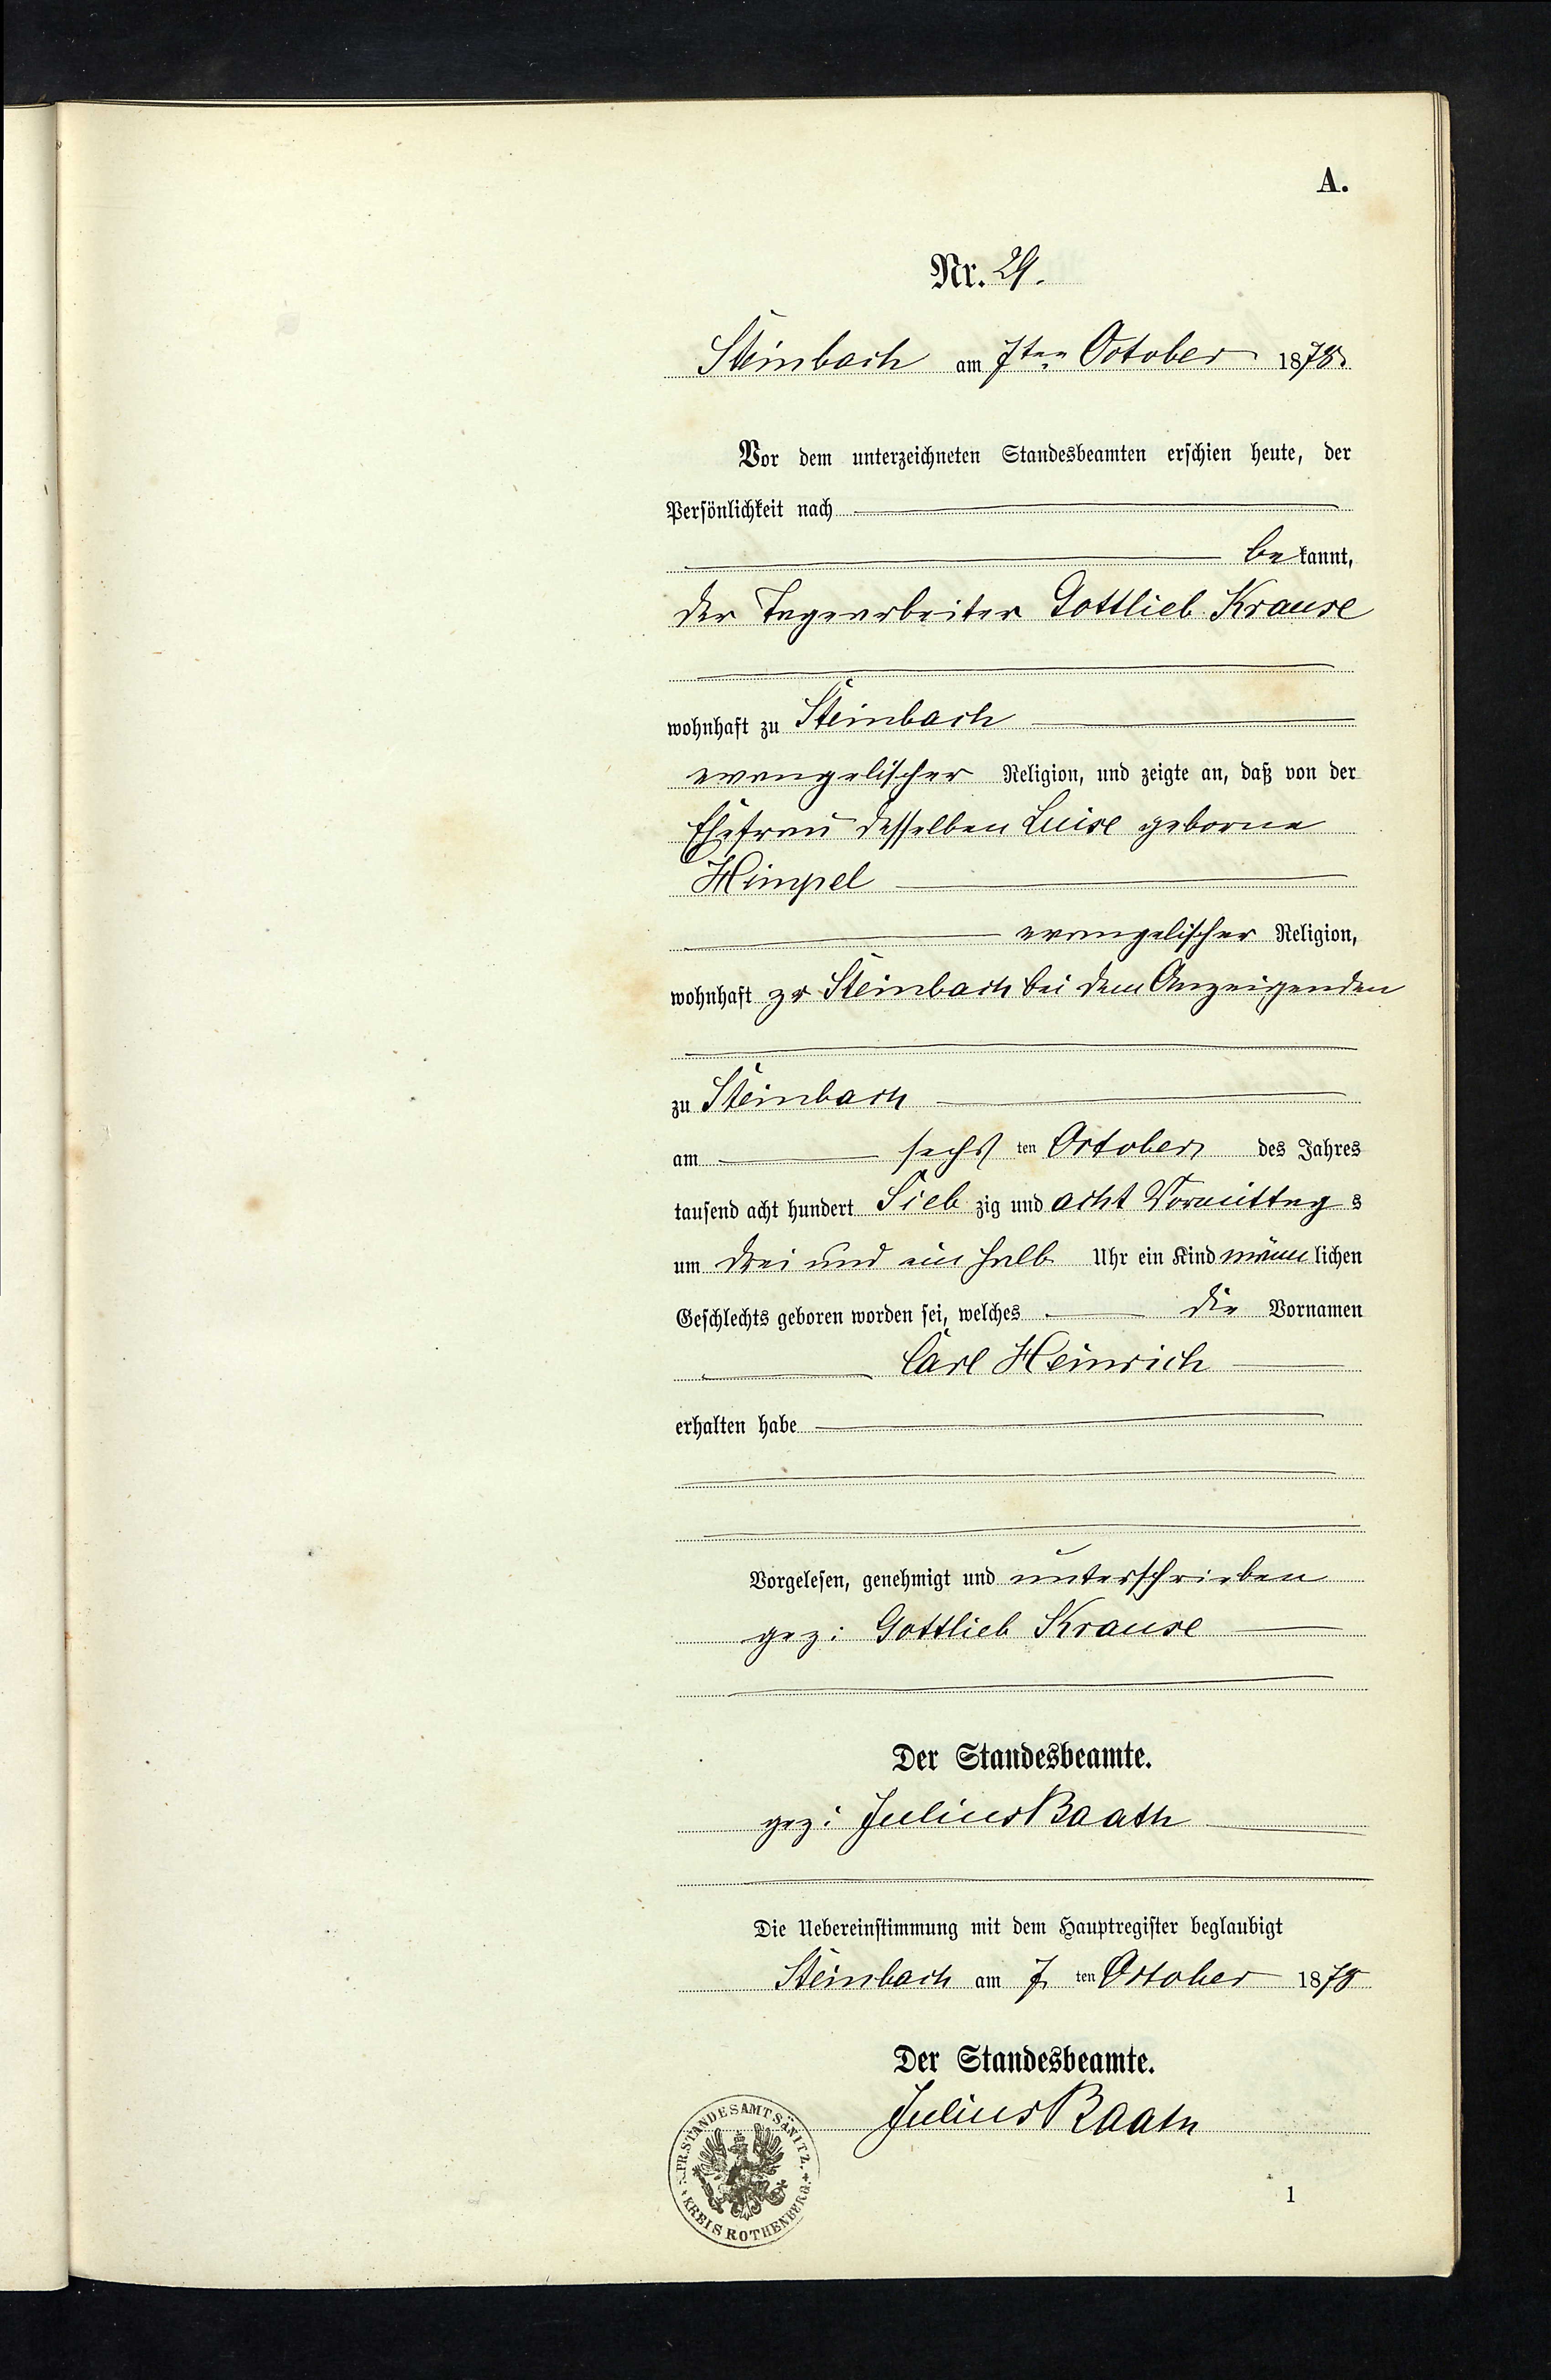 A.
Nr. 29.
Steinbach am 7ten October 1878.
Vor dem unterzeichneten Standesbeamten erschien heute, der
Persönlichkeit nach
bekannt,
der Tagearbeiter Gottlieb Krause
wohnhaft zu Steinbach
evangelischer Religion, und zeigte an, daß von der
Ehefrau desselben Luise geborne
Himpel
evangelischer Religion,
wohnhaft zu Steinbach bei dem Anzeigenden
zu Steinbach
am sechsten October des Jahres
tausend acht hundert Siebzig und acht Vormittags
um drei und ein halb Uhr ein Kind männlichen
Geschlechts geboren worden sei, welches die Vornamen
Carl Heinrich
erhalten habe
Vorgelesen, genehmigt und unterschrieben
gez: Gottlieb Krause
Der Standesbeamte.
gez: Julius Baath
Die Uebereinstimmung mit dem Hauptregister beglaubigt
Steinbach am 7ten October 1878
Der Standesbeamte.
Julius Baath
PR. STANDESAMT SÄNITZ.
KREIS ROTHENBURG.
1